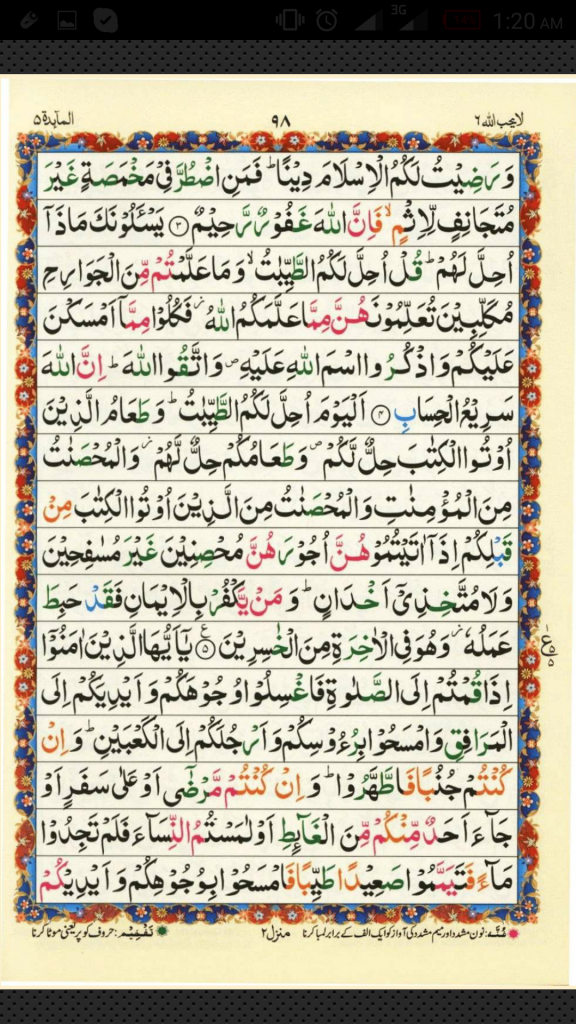 3G
1:20 AM
لا یحب الله ٦
٩٨
المآىدة ٥
وَرَضِيْتُ لَكُمُ الْاِسْلَامَ دِيْنًا ؕ فَمَنِ اضْطُرَّ فِيْ مَخْمَصَةٍ غَيْرَ
مُتَجَانِفٍ لِّاِثْمٍ ۙ فَاِنَّ اللّٰهَ غَفُوْرٌ رَّحِيْمٌ ۝۳ يَسْـَٔلُوْنَكَ مَاذَاۤ
اُحِلَّ لَهُمْ ؕ قُلْ اُحِلَّ لَكُمُ الطَّيِّبٰتُ ۙ وَمَا عَلَّمْتُمْ مِّنَ الْجَوَارِحِ
مُكَلِّبِيْنَ تُعَلِّمُوْنَهُنَّ مِمَّا عَلَّمَكُمُ اللّٰهُ ۫ فَكُلُوْا مِمَّاۤ اَمْسَكْنَ
عَلَيْكُمْ وَاذْكُرُوا اسْمَ اللّٰهِ عَلَيْهِ ۪ وَاتَّقُوا اللّٰهَ ؕ اِنَّ اللّٰهَ
سَرِيْعُ الْحِسَابِ ۝۴ اَلْيَوْمَ اُحِلَّ لَكُمُ الطَّيِّبٰتُ ؕ وَطَعَامُ الَّذِيْنَ
اُوْتُوا الْكِتٰبَ حِلٌّ لَّكُمْ ۪ وَطَعَامُكُمْ حِلٌّ لَّهُمْ ۫ وَالْمُحْصَنٰتُ
مِنَ الْمُؤْمِنٰتِ وَالْمُحْصَنٰتُ مِنَ الَّذِيْنَ اُوْتُوا الْكِتٰبَ مِنْ
قَبْلِكُمْ اِذَاۤ اٰتَيْتُمُوْهُنَّ اُجُوْرَهُنَّ مُحْصِنِيْنَ غَيْرَ مُسٰفِحِيْنَ
وَلَا مُتَّخِذِيْۤ اَخْدَانٍ ؕ وَمَنْ يَّكْفُرْ بِالْاِيْمَانِ فَقَدْ حَبِطَ
عَمَلُهٗ ۫ وَهُوَ فِي الْاٰخِرَةِ مِنَ الْخٰسِرِيْنَ ۝۵ يٰۤاَيُّهَا الَّذِيْنَ اٰمَنُوْۤا
اِذَا قُمْتُمْ اِلَى الصَّلٰوةِ فَاغْسِلُوْا وُجُوْهَكُمْ وَاَيْدِيَكُمْ اِلَى
الْمَرَافِقِ وَامْسَحُوْا بِرُءُوْسِكُمْ وَاَرْجُلَكُمْ اِلَى الْكَعْبَيْنِ ؕ وَاِنْ
كُنْتُمْ جُنُبًا فَاطَّهَّرُوْا ؕ وَاِنْ كُنْتُمْ مَّرْضٰۤى اَوْ عَلٰى سَفَرٍ اَوْ
جَآءَ اَحَدٌ مِّنْكُمْ مِّنَ الْغَآىِٕطِ اَوْ لٰمَسْتُمُ النِّسَآءَ فَلَمْ تَجِدُوْا
مَآءً فَتَيَمَّمُوْا صَعِيْدًا طَيِّبًا فَامْسَحُوْا بِوُجُوْهِكُمْ وَاَيْدِيْكُمْ
غنہ: نون مشدد اور میم مشدد کی آواز کو ایک الف کے برابر لمبا کرنا
منزل ۲
تفخیم: حروف کو پر یعنی موٹا کرنا